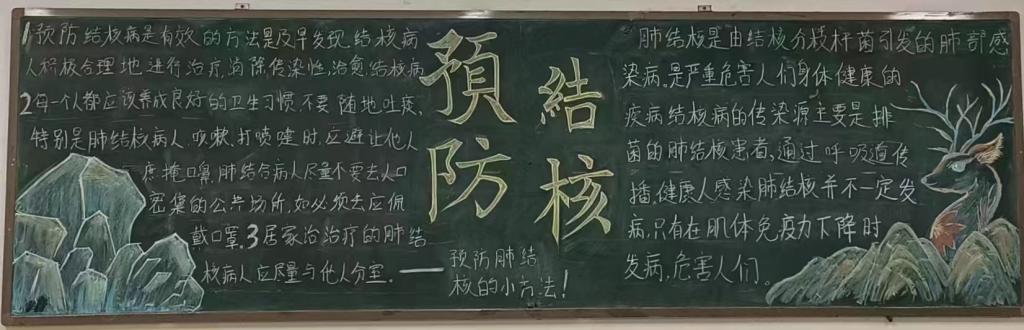 1预防结核病是有效的方法是及早发现结核病
人积极合理地进行治疗,消除传染性,治愈结核病
2每一个人都应该养成良好的卫生习惯不要随地吐痰,
特别是肺结核病人咳嗽,打喷嚏时应避让他人
掩口鼻,肺结合病人尽量不要去人口
密集的公共场所,如必须去应佩
戴口罩,3居家治治疗的肺结
核病人应尽量与他人分室.
——预防肺结
核的小方法!
預防
結核
肺结核是由结核分枝杆菌引发的肺部感
染病,是严重危害人们身体健康的
疾病结核病的传染源主要是排
菌的肺结核患者,通过呼吸道传
播,健康人感染肺结核并不一定发
病,只有在肌体免疫力下降时
发病,危害人们。